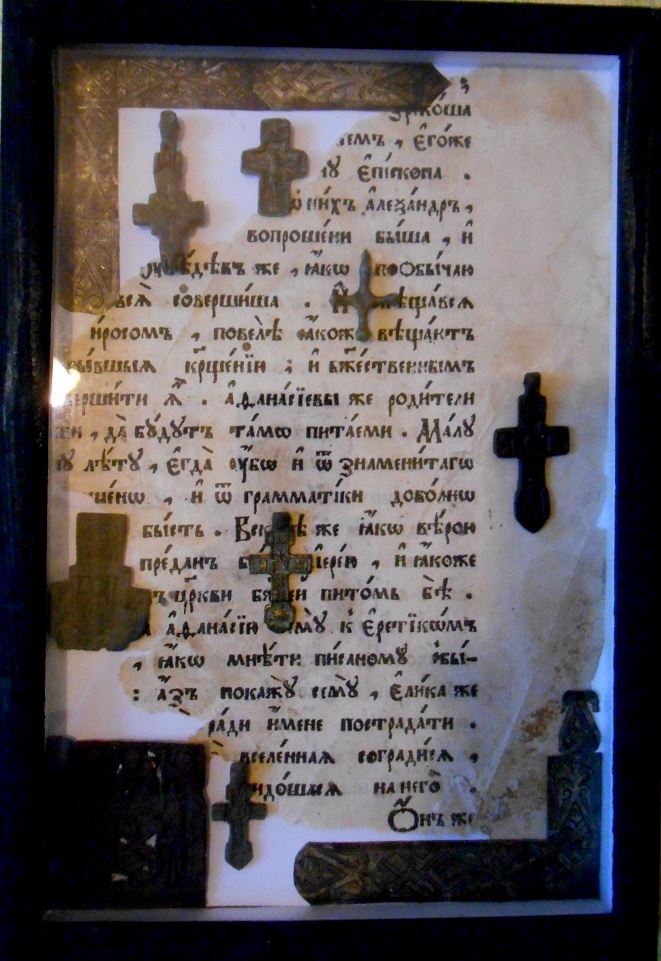 коша
емъ , є҆го́же
є҆пі́скопа .
ни́хъ а҆леѯа́ндръ ,
вопроше́ни бы́ша , и҆
же , ꙗ҆́кѡ по ѻ҆бы́чаю
соверши́ша .
и҆́рогомъ , повелѣ̀ ꙗ҆́кѡж вѣща́ютъ
бы́вшыѧ кр҃ще́нїи ; и҆ бж҃е́ственнымъ
верши́ти ѧ҆̀ . а҆ѳана́сїевы же роди́тели
да̀ бу́дутъ та́мѡ пита́еми . Ма́лу
лѣ́ту , є҆гда̀ ᲂу҆́бѡ и҆ ѿ знамени́тагѡ
и҆ ѿ грамматі́ки дово́лнѡ
бы́сть . же ꙗ҆́кѡ вѣ́рою
пре́данъ і҆ере́ю , и҆ ꙗ҆́коже
цр҃кви пито́мь бѣ̀ .
а҆ѳана́сїю сему̀ к̾ є҆ретїкѡ́мъ
, ꙗ҆́кѡ мнѣ́ти пи́саному ѻ҆бы́-
: а҆́зъ покажу̀ є҆му̀ , є҆ли́ка же
ра́ди и҆́мене пострада́ти .
вселе́нная согради́сѧ ,
идо́шасѧ на него̀ .
Ѻ҆́нъ же